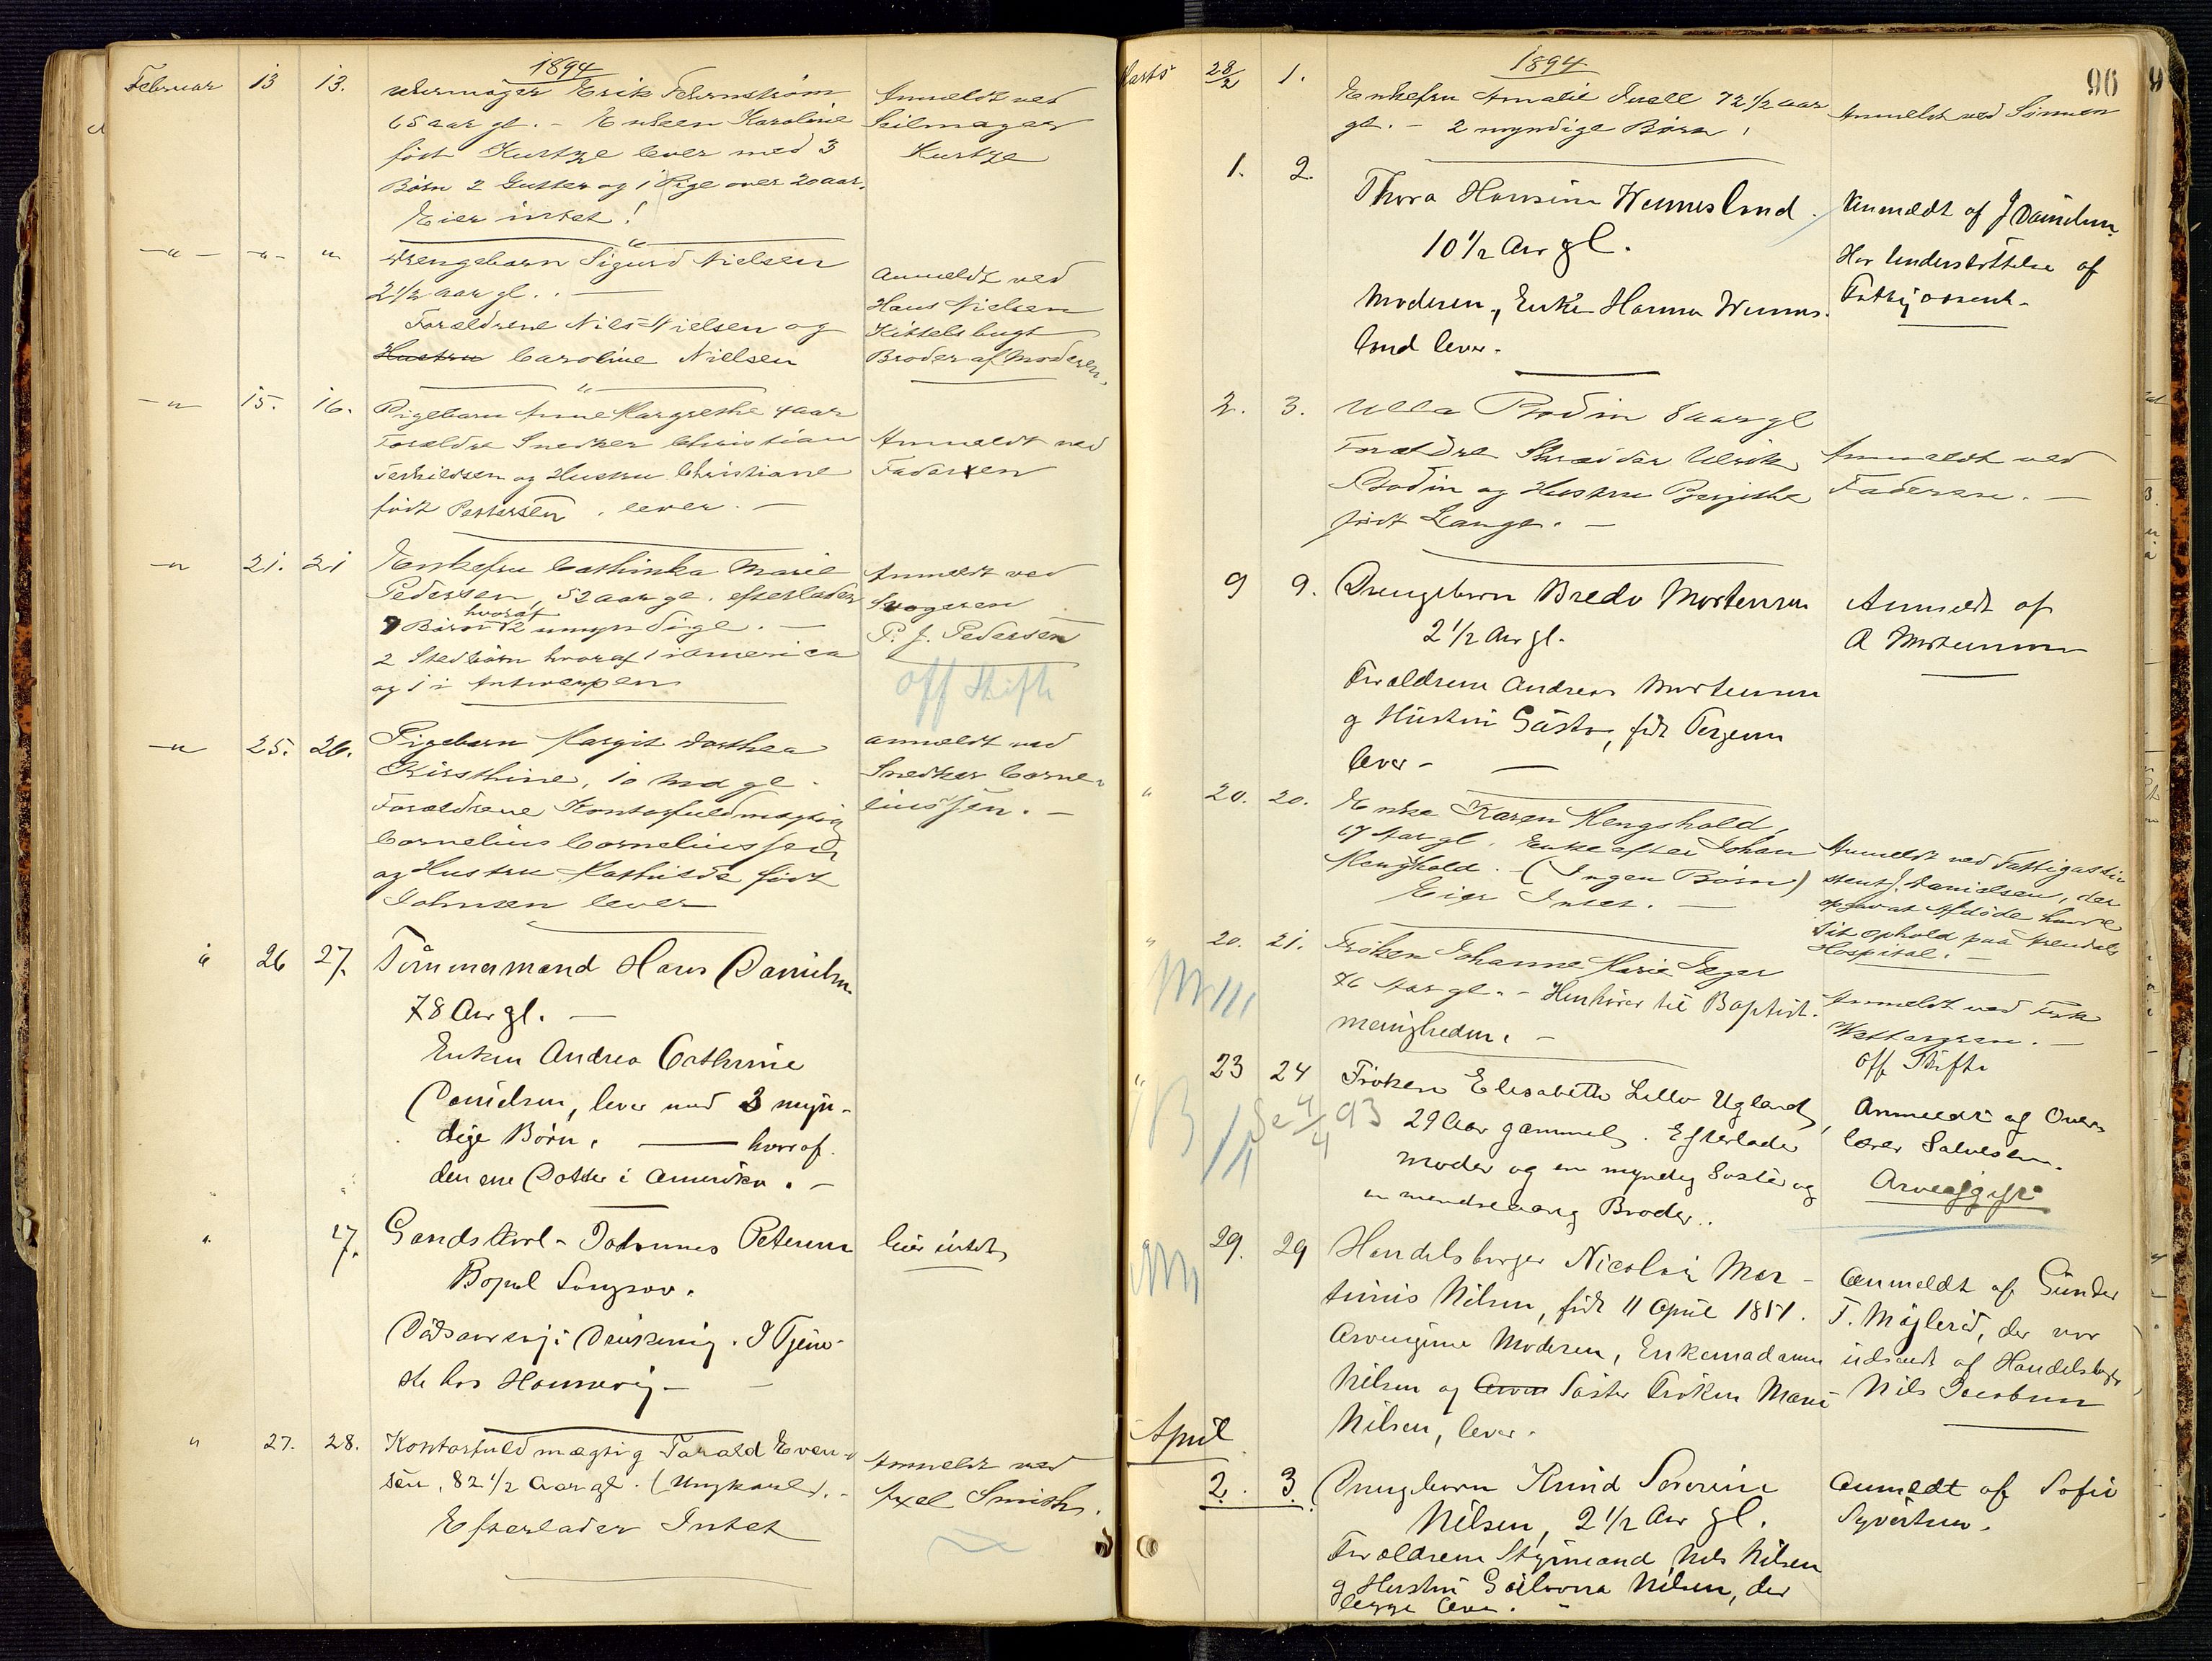 1894
Februar 13 13. Uhrmager Erik Fehrnstrøm
65 aar gl. - Enken Karoline
født Kurtze lever med 3
Børn 2 Gutter og 1 Pige over 20 aar.
Eier intet!
Anmeldt ved
Seilmager
Kurtze
-"- -"- " Drengebarn Sigurd Nielsen
2 1/2 aar gl. -
Forældrene Nils Nielsen og
Hustru Caroline Nielsen
Anmeldt ved
Hans Nielsen
Kittelsbugt
Broder af Moderen.
-"- 15. 16. Pigebarn Anne Margrethe 4 aar
Forældre Snedker Christian
Terkildsen og Hustru Christiane
født Pettersen, lever. -
Anmeldt ved
Faderen
-"- 21. 21 Enkefru Cathinka Marie
Pedersen, 52 aar gl. efterlader
7 Børn hvoraf 2 umyndige. -
2 Stedbørn hvoraf 1 i America
og 1 i Antwerpen
Anmeldt ved
Svogeren
P. J. Pedersen
Off Skifte
-"- 25. 26. Pigebarn Margit Dorthea
Kirsthine, 10 md gl.
Forældrene Kontorfuldmægtig
Cornelius Corneliussen
og Hustru Mathilde født
Johnsen lever
anmeldt ved
Snedker Corne-
liussen. -
" 26 27. Tømmermand Hans Danielsen
78 Aar gl. -
Enken Andrea Cathrine
Danielsen, lever med 3 myn-
dige Børn, - hvoraf
den ene Datter i Amerika. -
" 17. Gaardskarl Johannes Petersen
Bopæl Songsov.
Dødsaarsag: Drukning. I Tjene-
ste hos
Eier intet
" 27. 28. Kontorfuldmægtig Tarald Even-
sen, 82 1/2 Aar gl. (Ungkarl). -
Efterlader Intet
Anmeldt ved
Axel Smith.
1894
96
Marts 28/2 1. Enkefru Amalie Juell 72 1/2 aar
gl. - 2 myndige Børn,
Anmeldt ved Sønnen
1. 2. Thora Hansine Wennesland.
10 1/2 Aar gl.
Moderen, Enke Hanna Wennes-
land lever.
Anmeldt af J Danielsen.
Har Understøttelse af
2. 3. Ulla Bodin 8 aar gl
Forældre Skrædder Ulrik
Bodin og Hustru Birgithe
født Lange. -
Anmeldt ved
Faderen. -
9 9. Drengebarn Bredo Mortensen
2 1/2 Aar gl.
Forældrene Andreas Mortensen
g Hustru Gusta, født Terjesen
lever -
Anmeldt af
A Mortensen
" 20. 20. Enke Karen Mengshold,
67 Aar gl. Enke efter Johan
Mengshold. - (Ingen Børn)
Eier Intet. -
Anmeldt ved Fattigassi-
stent J. Danielsen, der
opgav at Afdøde havde
sit ophold paa Arendals
Hospital. -
" 20. 21. Frøken Johanne Marie Jeger
76 Aar gl. - Henhører til Baptist-
menigheden. -
Anmeldt ved Frk
Wettergren. -
Off Skifte
" 23 24 Frøken Elisabeth Lello Ugland,
29 Aar gammel. Efterlader
Moder og en myndig Søster og
en mindreaarig Broder.
Se 4/4 93
Anmeldt af Over-
lærer Salvesen.
Arveafgift
29. 29 Handelsborger Nicolai Mar-
tinius Nilsen, født 11 April 1851.
Arvingerne Moderen, Enkemadame
Nilsen og Søster Frøken Marie
Nilsen, lever.
Anmeldt af Gunder
T. Møglerid, der var
udsendt af Handelsborger
Nils Jacobsen
April
2. 3. Drengebarn Knud Severin
Nilsen, 2 1/2 Aar gl.
Forældrene Styrmand Nils Nilsen
g Hustru Gudrona Nilsen, der
begge lever. -
Anmeldt af Sofie
Syvertsen.